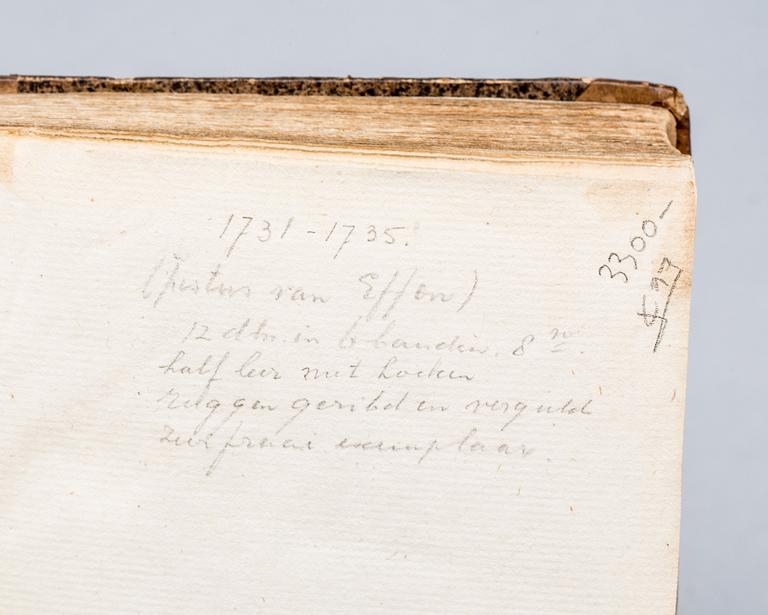 1731-1735.
(Justus van Effen)
12 dln. in 6 banden. 8 vo.
half leer met hoeken
ruggen geribd en verguld
zeer fraai exemplaar.
3300-